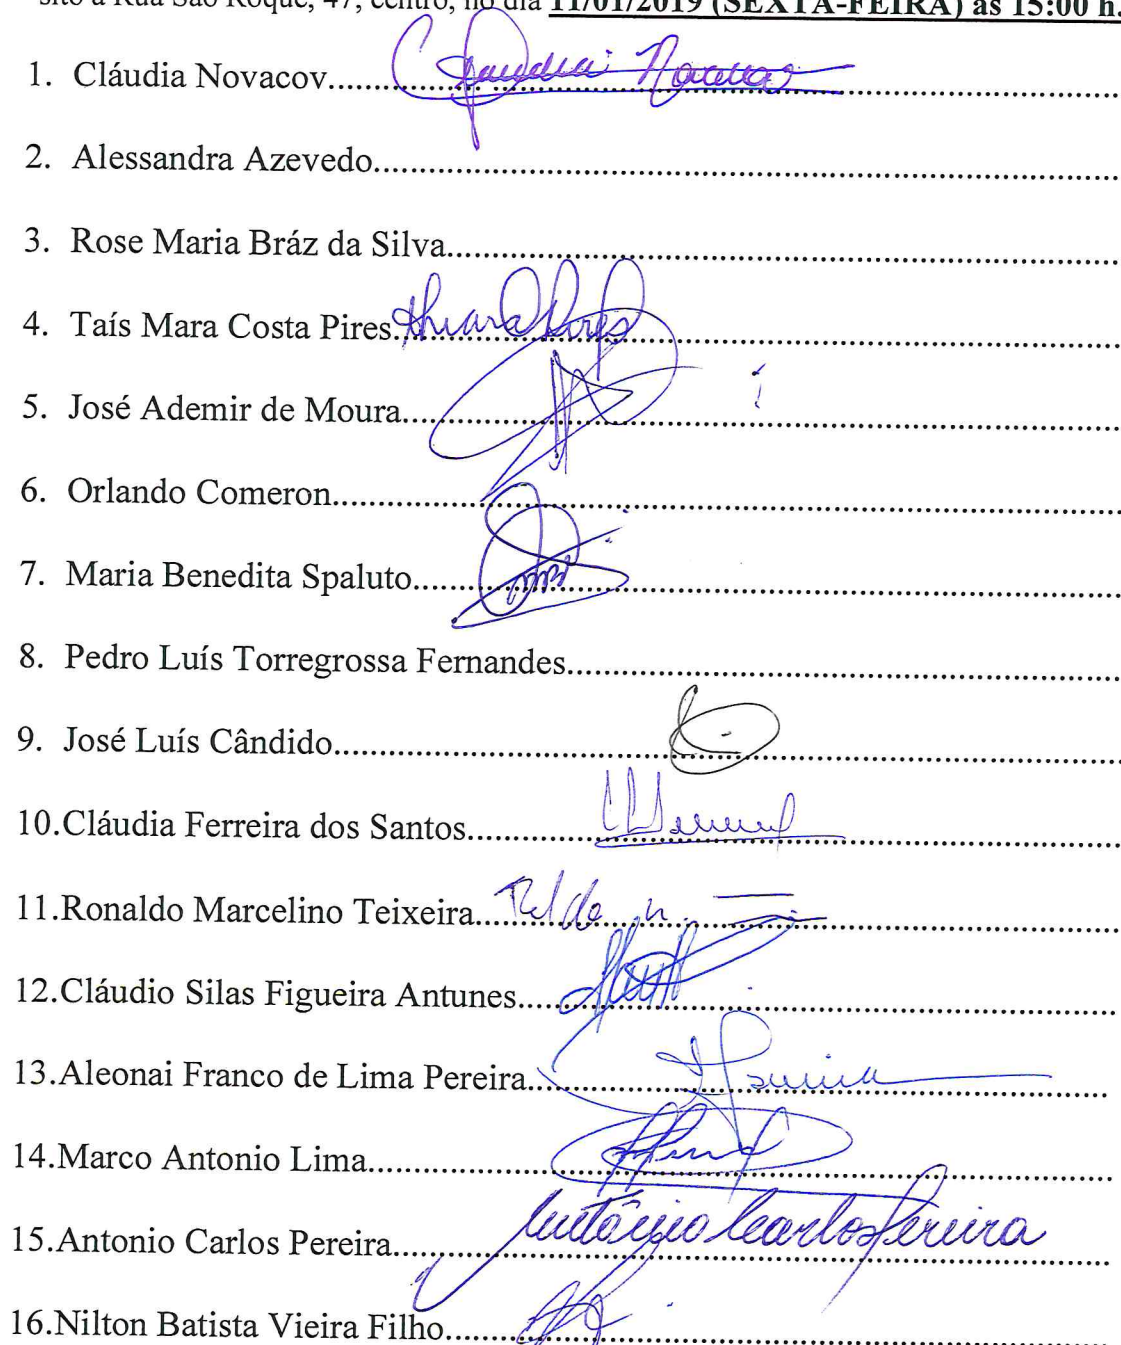 sito à Rua São Roque, 47, centro, no dia 11/01/2019 (SEXTA-FEIRA) às 15:00 h.
1. Cláudia Novacov.......... Claudia Novacov
2. Alessandra Azevedo..........
3. Rose Maria Bráz da Silva..........
4. Taís Mara Costa Pires..........
5. José Ademir de Moura..........
6. Orlando Comeron..........
7. Maria Benedita Spaluto..........
8. Pedro Luís Torregrossa Fernandes..........
9. José Luís Cândido..........
10.Cláudia Ferreira dos Santos..........
11.Ronaldo Marcelino Teixeira..........
12.Cláudio Silas Figueira Antunes..........
13.Aleonai Franco de Lima Pereira..........
14.Marco Antonio Lima..........
15.Antonio Carlos Pereira.......... Antônio Carlos Pereira
16.Nilton Batista Vieira Filho..........